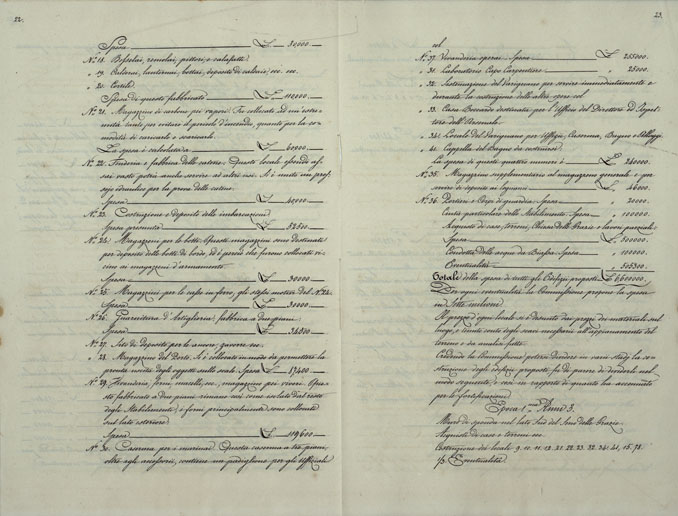 22.
Spesa £ 30000
N.º 18. Bozzolai, remolai, pittori, e calafatti
" 19. Calorni, lanternini, bottai, deposito di calorni, ecc. ecc.
" 20. Cortile
Spesa di questo fabbricato £ 110000
N.º 21. Magazzino di carbone pei vapori. Fu collocato ad un'estre-
mità tanto per evitare il pericolo d'incendio, quanto per la co-
modità di caricarlo e scaricarlo.
La spesa è calcolata a £ 60000
N.º 22. Fonderia e fabbrica delle catene. Questo locale essendo as-
sai vasto potrà anche servire ad altri usi. Vi è unito un pres-
sojo idraulico per la prova delle catene.
Spesa £ 40000
N.º 23. Costruzione e deposito delle imbarcazioni
Spesa presunta £ 52500
N.º 24. Magazzeni per le botti. Questi magazzini sono destinati
per deposito delle botti da bordo, ed è perciò che furono collocati vi-
cino ai magazzini d'armamento.
Spesa £ 30000
N.º 25. Magazzini per le casse in ferro, gli stessi motivi del N.º 24.
Spesa £ 30000
N.º 26. Guarnitura d'Artiglieria, fabbrica a due piani.
Spesa £ 34500
N.º 27. Siti di deposito per le ancore, zavorre ecc.
" 28. Magazzino del Porto. Si è collocato in modo da permettere la
pronta uscita degli oggetti sullo scalo. Spesa £ 17400
N.º 29. Fonderia, forni, macello, ecc., magazzini pei viveri. Que-
sto fabbricato a due piani rimane così come isolato dal resto
degli Stabilimenti, e i forni principalmente sono collocati
sul lato esteriore.
Spesa £ 119600
N.º 30. Caserma per i marinai. Questa caserma a tre piani,
oltre agli accessorii, contiene un padiglione per gli Uffiziali
23.
ecc.
N.º 37. Veranderia operai. Spesa £ 255000.
" 31. Laboratorio Capo Carpentiere " 25000.
" 32. Sistemazione del Varignano per servire immediatamente e
durante la costruzione delle altre opere ecc.
" 33. Casa Boccardo destinata per l'Ufficio del Direttore ed Ispet-
tore dell'Arsenale.
" 34. Locale del Varignano per Uffizii, Caserma, Bagno e Alloggi.
" 41. Cappella del Bagno da costruirsi
La spesa di questi quattro numeri è £ 240000.
N.º 35. Magazzini supplementari al magazzino generale e per
servire di deposito ai legnami £ 46000.
N.º 36. Portiere e Corpo di guardia. Spesa " 20000.
Cinta particolare dello Stabilimento. Spesa " 100000.
Acquisto di case, terreni, Chiesa delle Grazie e lavori parziali
Spesa £ 500000
Condotta delle acque da Biassa. Spesa " 100000.
Eventualità " 505300.
Totale della spesa di tutti gli Edifizi proposti £ 6600000.
Per ogni eventualità la Commissione propone la spesa
in Sette milioni.
Il prezzo d'ogni locale si è desunto dai prezzi dei materiali sul
luogo, e tenuto conto degli scavi necessari all'appianamento del
terreno e da analisi fatte.
Credendo la Commissione potersi dividere in vari stadj la co-
struzione degli edifizi proposti fu di parere di dividerli nel
modo seguente, e ciò in rapporto di quanto ha accennato
per le fortificazioni.
Epoca 1.ª Anni 3.
Muro di sponda nel lato Sud del Seno delle Grazie.
Acquisto di case e terreni ecc.
Costruzione dei locali 9. 10. 11. 12. 13. 21. 22. 23. 32. 34. 41. 15. 78.
1/3 Eventualità.